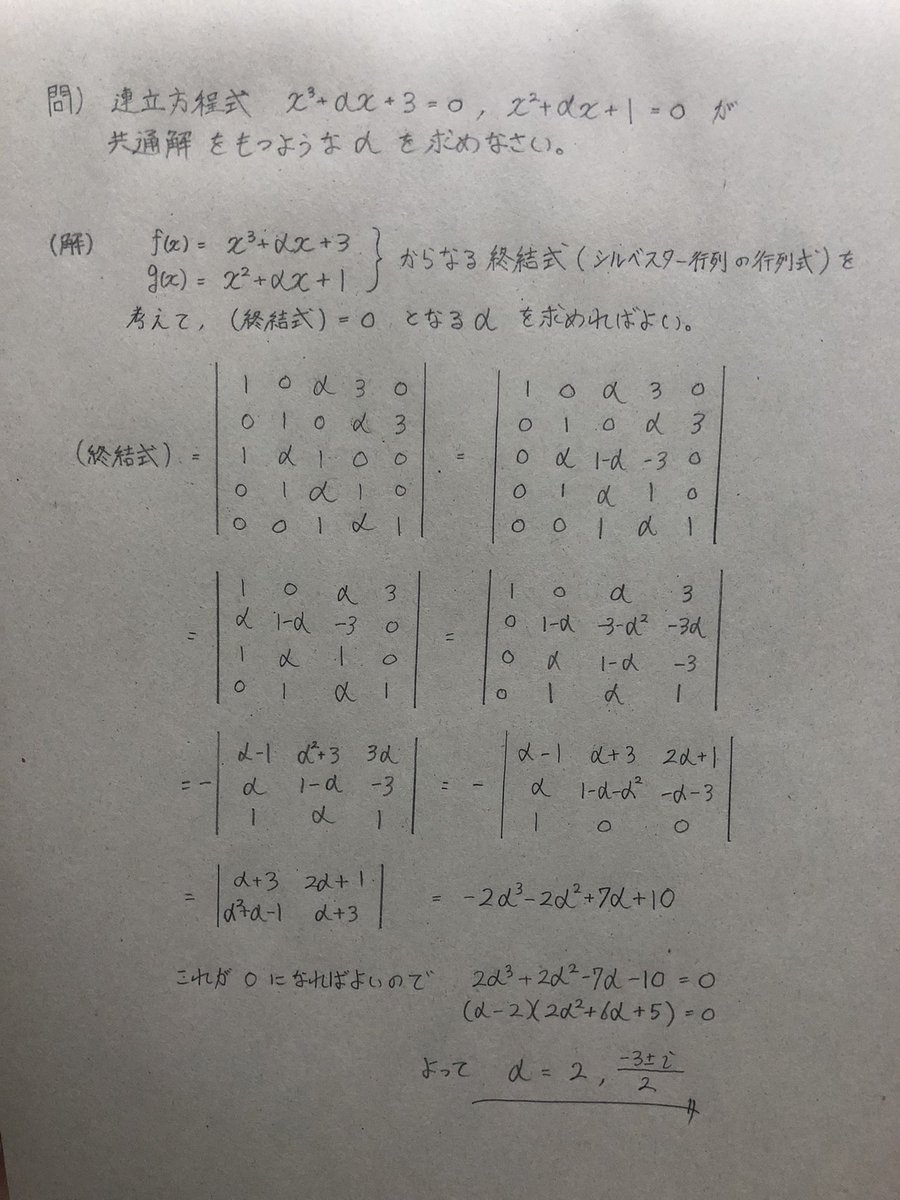 問) 連立方程式 x³+αx+3=0, x²+αx+1=0 が
共通解をもつようなαを求めなさい。
(解) f(x)= x³+αx+3
g(x)= x²+αx+1 } からなる終結式(シルベスター行列の行列式)を
考えて, (終結式)=0 となるα を求めればよい。
(終結式) = | 1 0 α 3 0 | = | 1 0 α 3 0 |
| 0 1 0 α 3 | | 0 1 0 α 3 |
| 1 α 1 0 0 | | 0 α 1-α -3 0 |
| 0 1 α 1 0 | | 0 1 α 1 0 |
| 0 0 1 α 1 | | 0 0 1 α 1 |
= | 1 0 α 3 | = | 1 0 α 3 |
| α 1-α -3 0 | | 0 1-α -3-α² -3α |
| 1 α 1 0 | | 0 α 1-α -3 |
| 0 1 α 1 | | 0 1 α 1 |
= - | α-1 α²+3 3α | = - | α-1 α+3 2α+1 |
| α 1-α -3 | | α 1-α-α² -α-3 |
| 1 α 1 | | 1 0 0 |
= | α+3 2α+1 | = -2α³-2α²+7α+10
| α²+α-1 α+3 |
これが 0 になればよいので 2α³+2α²-7α-10=0
(α-2)(2α²+6α+5)=0
よって α = 2, (-3±i)/2